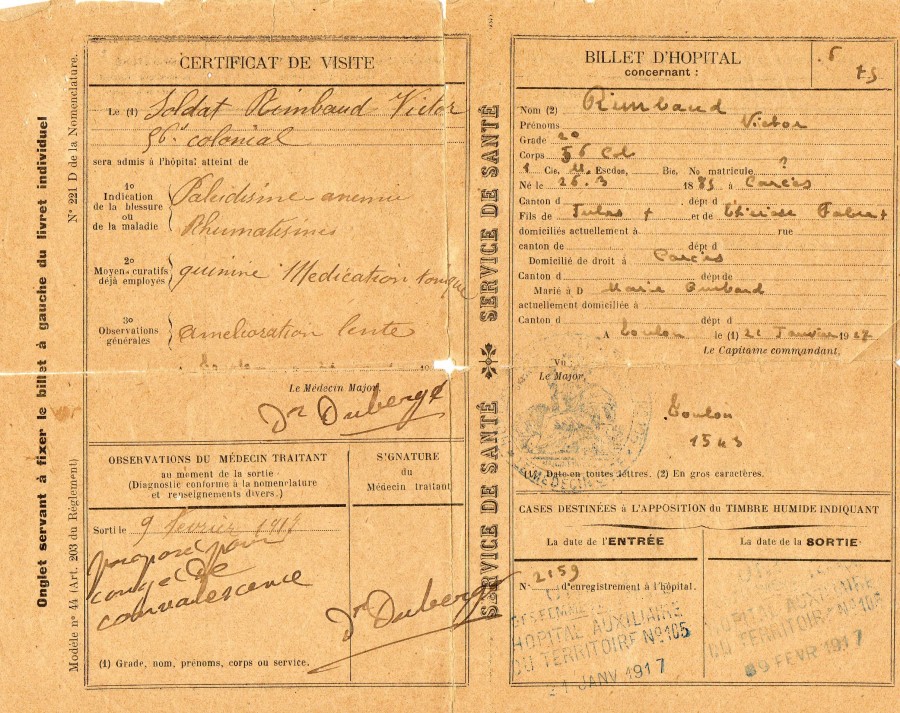 Onglet servant à fixer le billet à gauche du livret individuel
N° 221 D de la Nomenclature.
Modèle n° 44 (Art. 203 du Règlement)
CERTIFICAT DE VISITE
Le (1) Soldat Rimbaud Victor
56e colonial
sera admis à l'hôpital atteint de
1o
Indication
de la blessure
ou
de la maladie
Paludisme anemie
Rhumatismes
2o
Moyens curatifs
déjà employés
quinine Medication tonique
3o
Observations
générales
amelioration lente
Le Médecin Major,
Dr Duberge
OBSERVATIONS DU MÉDECIN TRAITANT
au moment de la sortie
(Diagnostic conforme à la nomenclature
et renseignements divers.)
SIGNATURE
du
Médecin traitant
Sorti le 9 fevrier 1917
proposé pour
congé de
convalescence
Dr Duberge
(1) Grade, nom, prénoms, corps ou service.
SERVICE DE SANTÉ SERVICE DE SANTÉ
BILLET D'HOPITAL
concernant :
Nom (2) Rimbaud
Prénoms Victor
Grade 2o
Corps 56 Col
Cie, Escdon, Bie, No matricule ?
Né le 26.3 188 à Carcès
Canton d dépt d
Fils de Jules + et de Thérèse Fabre +
domiciliés actuellement à rue
canton de dépt d
Domicilié de droit à Carcès
Canton d dépt de
Marié à D Marie
actuellement domiciliée à
Canton d dépt d
A Toulon le (1) 21 Janvier 1917
Le Capitaine commandant,
Vu
Le Major,
Toulon
1543
(1) Date en toutes lettres. (2) En gros caractères.
CASES DESTINÉES à L'APPOSITION du TIMBRE HUMIDE INDIQUANT
La date de l'ENTRÉE
La date de la SORTIE
N° 2159 d'enregistrement à l'hôpital.
HOPITAL AUXILIAIRE
DU TERRITOIRE N°105
21 JANV 1917
HOPITAL AUXILIAIRE
DU TERRITOIRE N°105
09 FEVR 1917